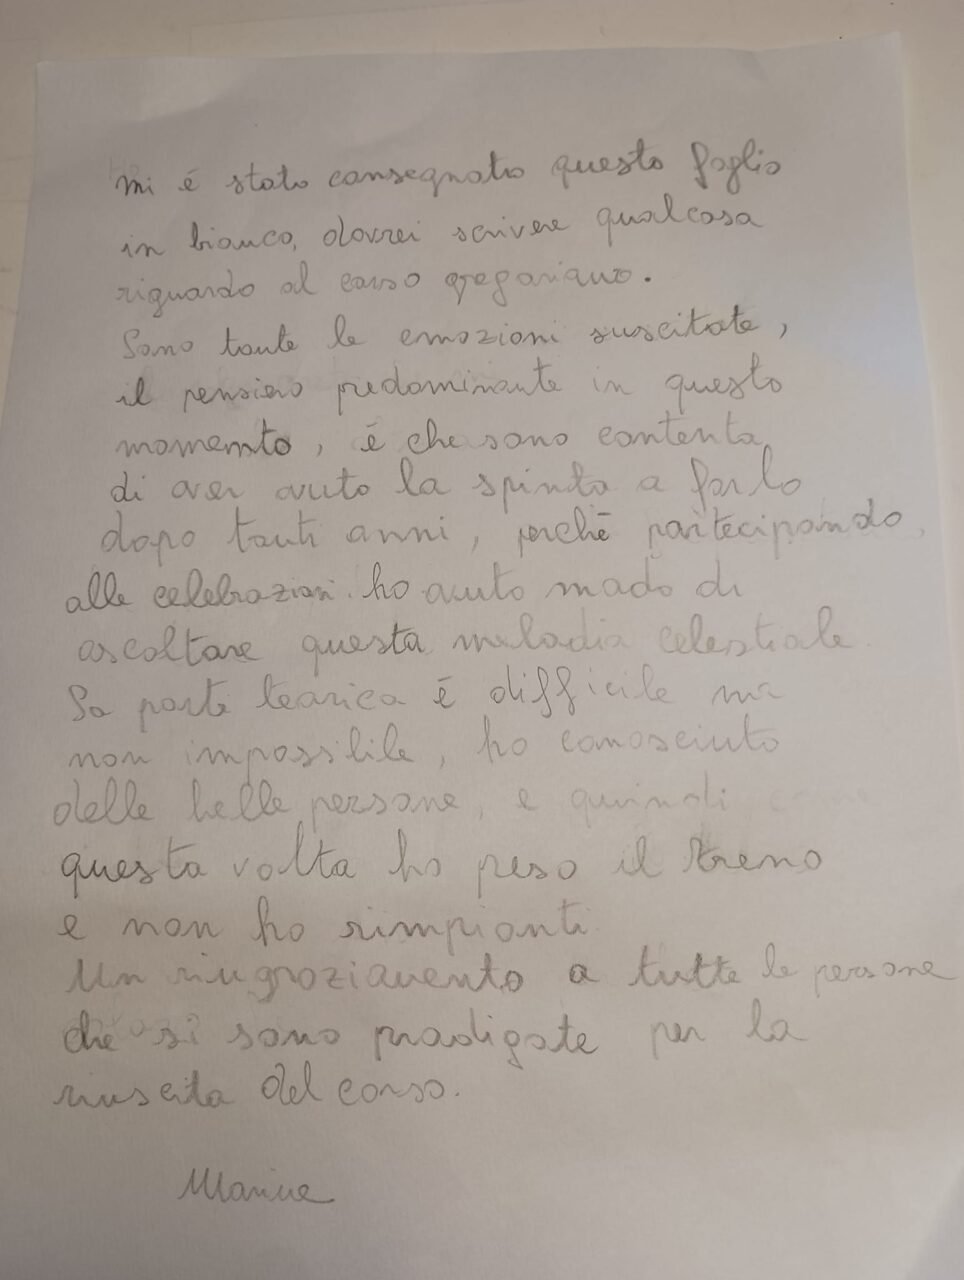 mi é stato consegnato questo foglio
in bianco, dovrei scrivere qualcosa
riguardo al corso gregoriano.
Sono tante le emozioni suscitate,
il pensiero predominante in questo
momento, é che sono contenta
di aver avuto la spinta a farlo
dopo tanti anni, perchē partecipando
alle celebrazioni ho avuto modo di
ascoltare questa melodia celestiale.
La parte teorica é difficile ma
non impossibile, ho conosciuto
delle belle persone, e quindi
questa volta ho peso il treno
e non ho rimpianti
Un ringraziamento a tutte le persone
che si sono prodigate per la
riuscita del corso.